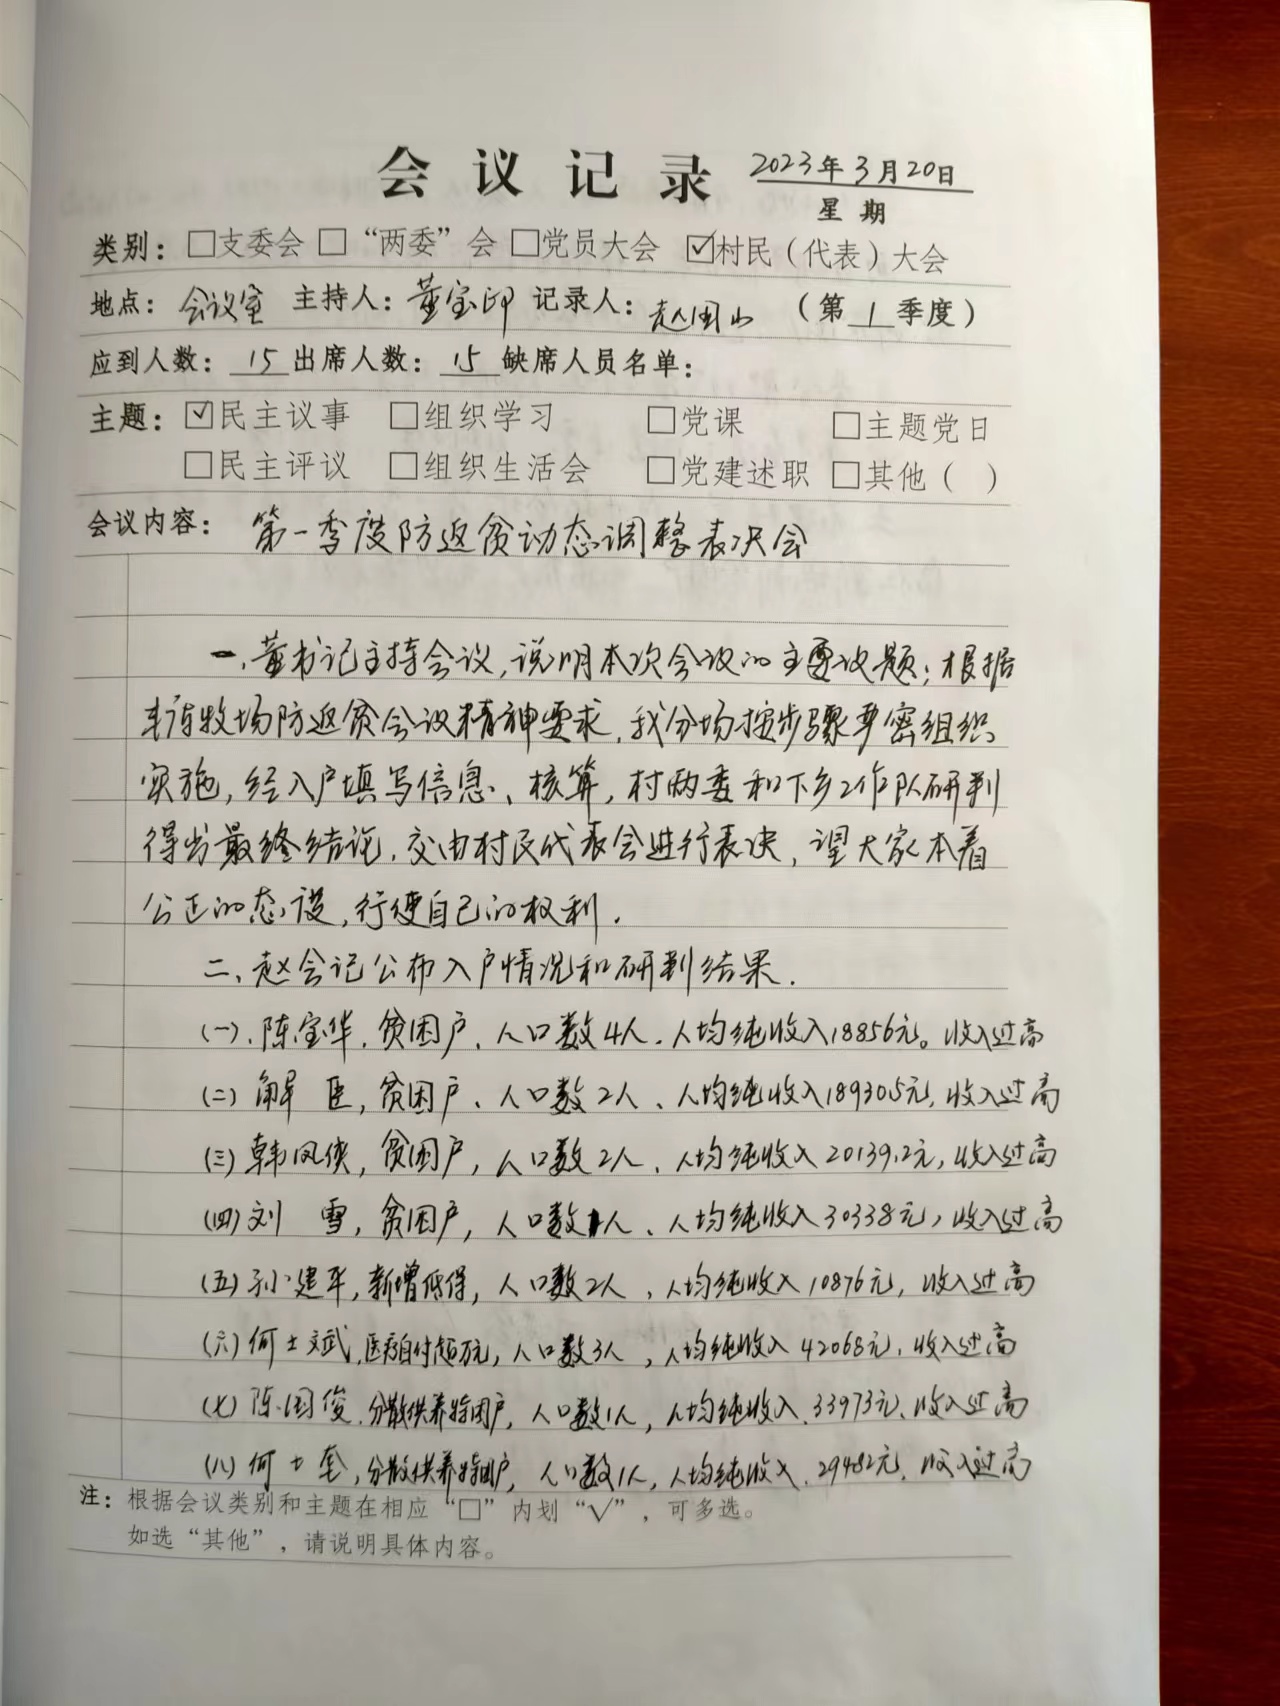 会议记录 2023年3月20日
星期
类别：□支委会 □“两委”会 □党员大会 ☑村民（代表）大会
地点：会议室 主持人：董宝印 记录人：赵国山 （第1季度）
应到人数：15出席人数：15缺席人员名单：
主题：☑民主议事 □组织学习 □党课 □主题党日
□民主评议 □组织生活会 □党建述职 □其他（ ）
会议内容：第一季度防返贫动态调整表决会
一、董书记主持会议，说明本次会议的主要议题；根据
牧场防返贫会议精神要求，我分场按步骤严密组织
实施，经入户填写信息、核算，村两委和下乡工作队研判
得出最终结论，交由村民代表会进行表决，望大家本着
公正的态度，行使自己的权利.
二、赵会记公布入户情况和研判结果.
(一)、陈宝华，贫困户、人口数4人、人均纯收入18856元。收入过高
(二) 解 臣，贫困户、人口数2人、人均纯收入18930.5元，收入过高
(三) 韩凤侠，贫困户，人口数2人、人均纯收入20139.2元，收入过高
(四) 刘 雪，贫困户，人口数1人、人均纯收入30338元，收入过高
(五) 孙建平，新增低保，人口数2人，人均纯收入10876元，收入过高
(六) 何士斌，医疗自付超万元，人口数3人，人均纯收入42068元，收入过高
(七) 陈国俊，分散供养特困户，人口数1人，人均纯收入33973元、收入过高
(八) 何士奎，分散供养特困户，人口数1人，人均纯收入29482元，收入过高
注：根据会议类别和主题在相应“□”内划“√”，可多选。
如选“其他”，请说明具体内容。